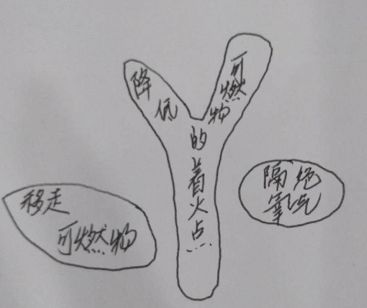 降低
可燃物
的着火点
移走
可燃物
隔绝
氧气